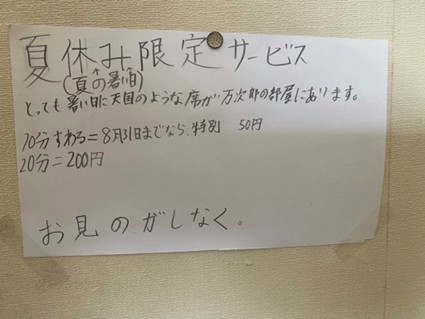 夏休み限定サービス
(夏の暑い日)
とっても暑い日に天国のような席が万次郎の部屋にあります。
10分すわる=8月31日までなら、特別 50円
20分=200円
お見のがしなく。